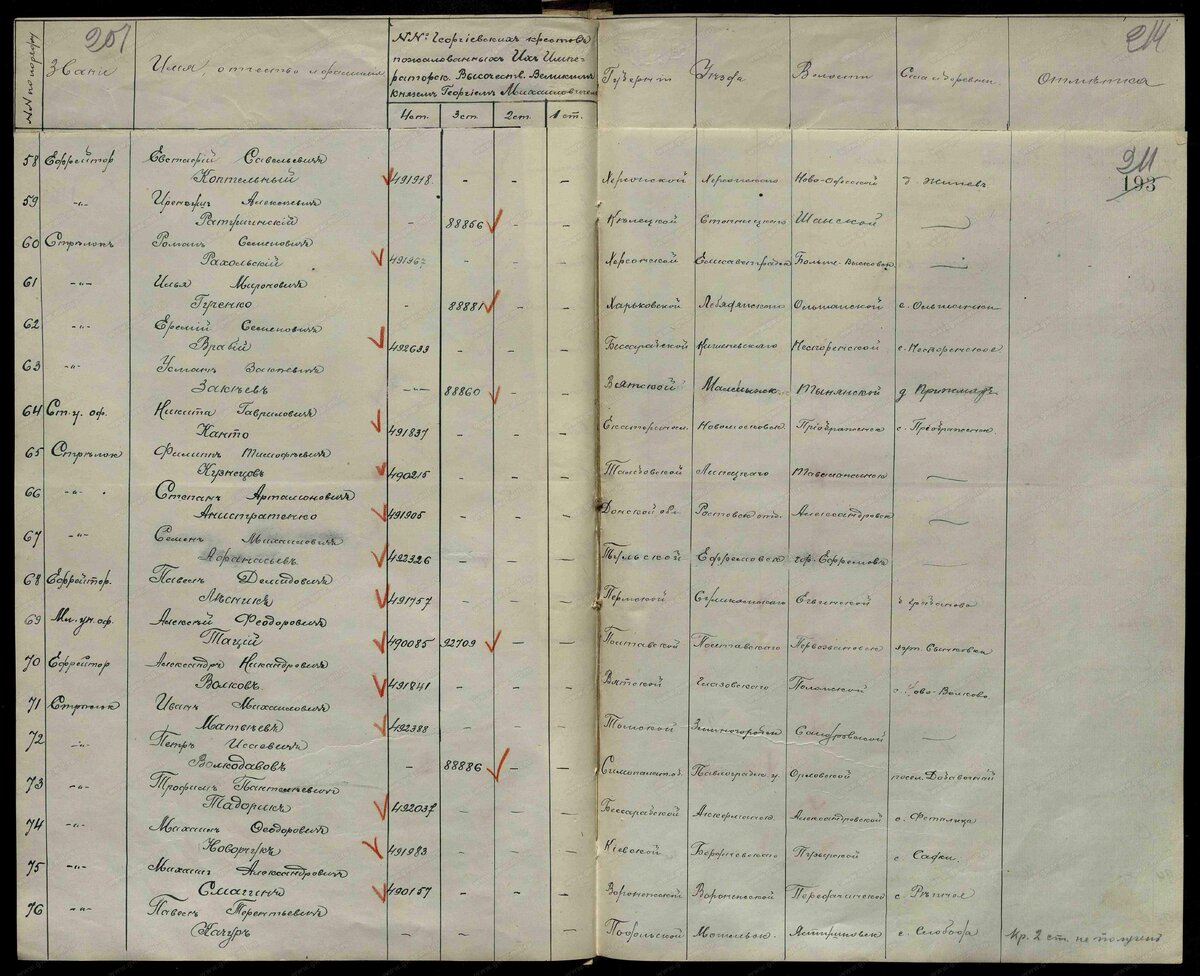 201
214
NN по порядку
Званiе
Имя, отчество и фамилiя
NNº Георгiевскихъ крестовъ
пожалованныхъ Ихъ Импе-
раторск. Высочеств. Великимъ
княземъ Георгiемъ Михаиловичемъ
4 ст. 3 ст. 2 ст. 1 ст.
Губернiи Уѣзда Волости Села и деревни Отмѣтка
211
193
58 Ефрейтор Евстафiй Савельевичъ
Коптельный 491918. - - - Херсонской Херсонскаго Ново-Одесской
59 -"- Алексѣевичъ
- 88856 - - Кѣлецкой Стопницкаго Шанской —
60 Стрѣлокъ Романъ Семеновичъ
Рахольскiй - - - Херсонской Елисаветград Больш. Высковск —
61 -"- Илья Мироновичъ
Гуренко - 88881 - - Харьковской Лебединскаго Ольшанской с. Ольшанки
62 -"- Еремiй Семеновичъ
Вравiй 492633 - - - Бессарабской Кишеневскаго
63 -"- Усманъ Закѣевичъ
Закѣевъ -"- 88860 - - Вятской Малмыжск д.
64 Ст. у. оф. Никита Гавриловичъ
Канто 491837 - - - Екатериносл. Новомосковск Преображенск с. Преображенск.
65 Стрѣлок Филиппъ Тимофѣевичъ
Кузнецовъ 490215 - - - Тамбовской Липецкаго —
66 -"- Степанъ Артамоновичъ
Анистратенко 491905 - - - Донской обл. Ростовск отд. Александровск —
67 -"- Семенъ Михаиловичъ
Афанасьевъ 492326 - - Тульской Ефремовск гор. Ефремовъ —
68 Ефрейтор. Павелъ Демидовичъ
Лѣсникъ 491757 - - - Пермской Соликомскаго Егвинской
69 Мл. ун. оф. Алексѣй Феодоровичъ
Тацiй 490085 92709 - - Полтавской Полтавскаго Первозвановск
70 Ефрейтор Александръ Никандровичъ
Волковъ. 491841 - - - Вятской Глазовскаго Поломской
71 Стрѣлок Иванъ Михаиловичъ
Матвѣевъ 492388 - - - Томской Змѣиногорск —
72 -"- Петръ Исаевичъ
Волкодавовъ - 88886 - - Павлоградск у. Орловской
73 -"- Трофимъ Пантелѣевичъ
Тадорикъ 492037 - - - Бессарабской Аккерманск. Александровской
74 -"- Михаилъ Феодоровичъ
Новорчукъ 491983 - - - Кiевской
75 -"- Михаил Александровичъ
Смагинъ 490157 - - - Воронежской Воронежской
76 -"- Павелъ Терентьевичъ
Качуръ - - - - Подольской с. Слобода Кр. 2 ст. не получилъ